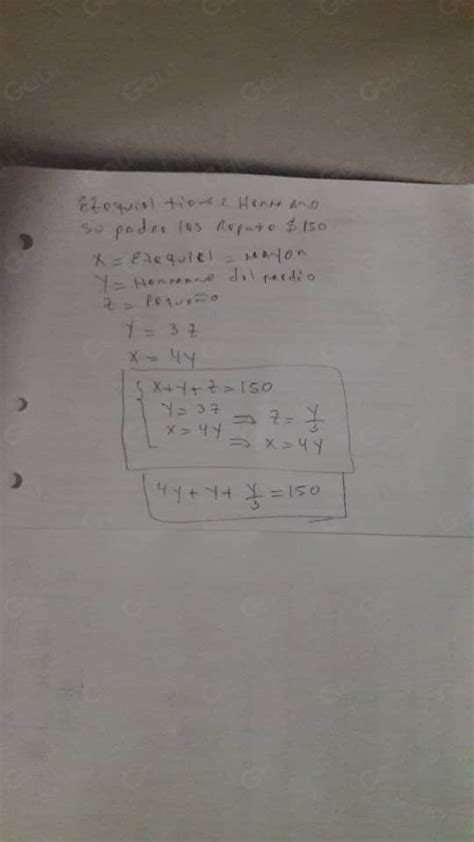 Ezequiel tiene 2 Hermano
su padre les Reputo $150
X = Ezequiel = Mayor
Y = Hermano del medio
Z = Pequeño
Y = 3Z
X = 4Y
X+Y+Z=150
Y=37 ⇒ Z=Y/3
X=4Y ⇒ X=4Y
4Y+Y+Y/3=150